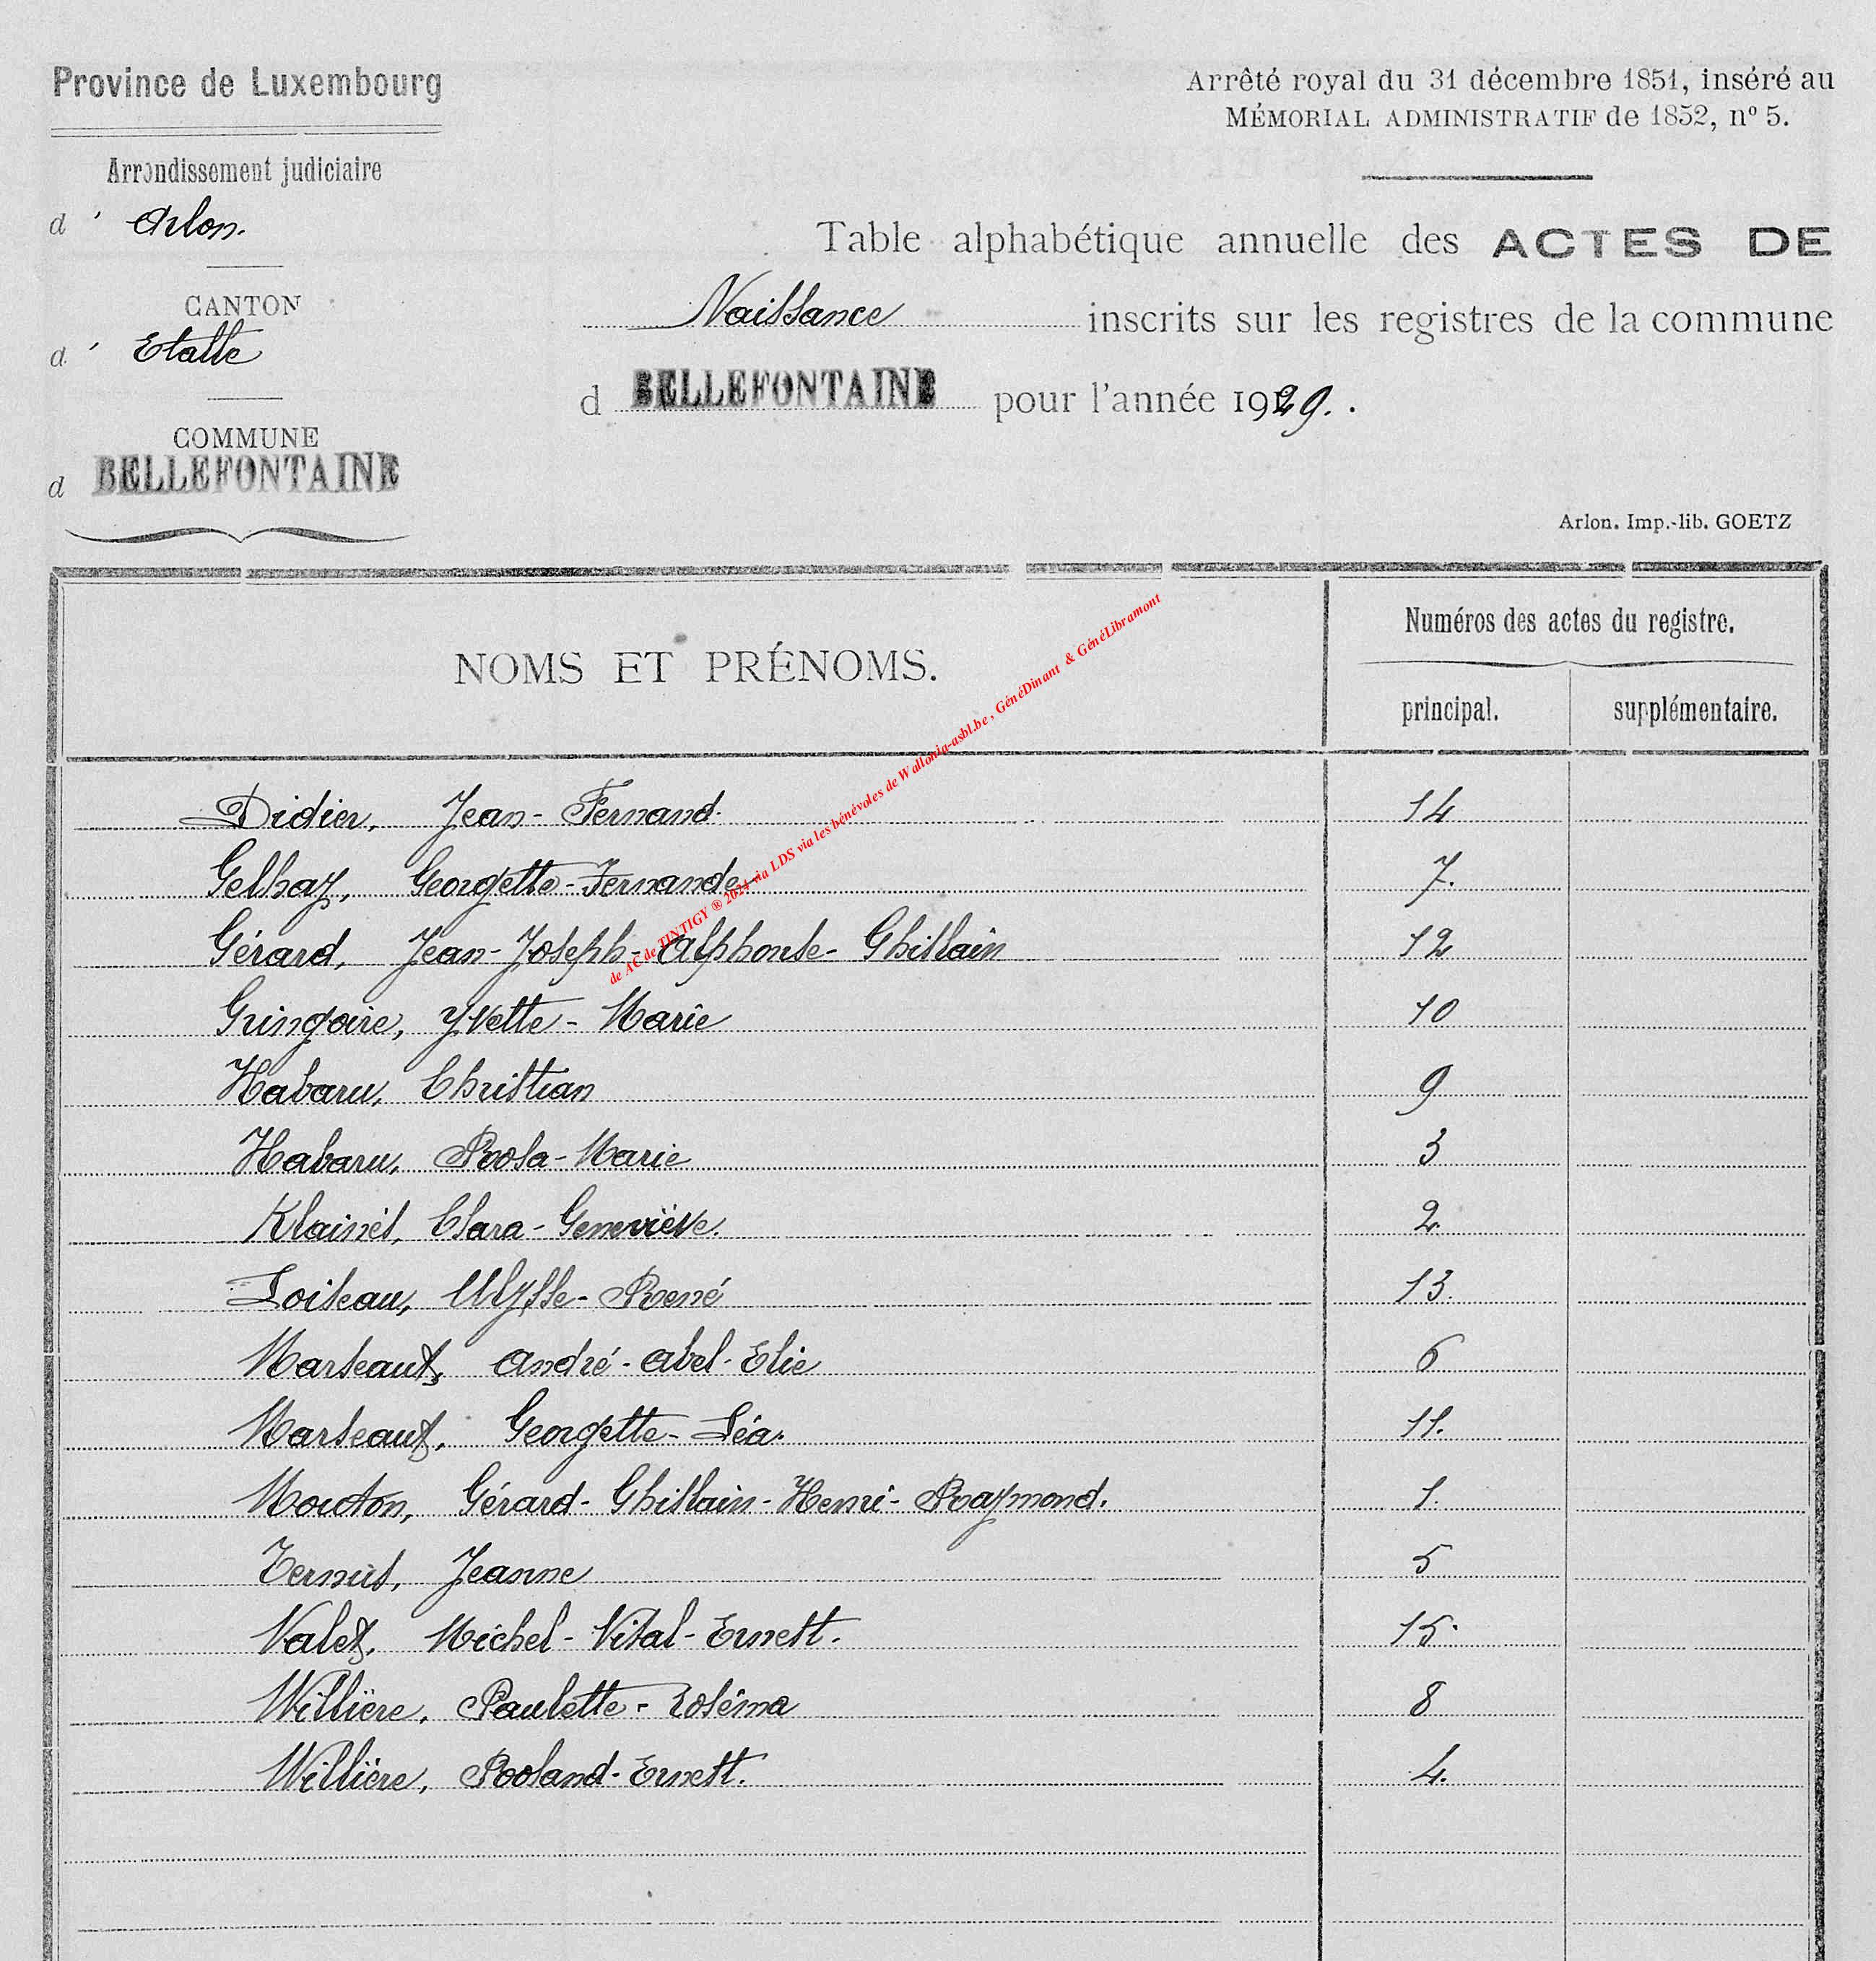 Province de Luxembourg
Arrondissement judiciaire
d' Arlon.
CANTON
d' Etalle
COMMUNE
d BELLEFONTAINE
Arrêté royal du 31 décembre 1851, inséré au
MÉMORIAL ADMINISTRATIF de 1852, nº 5.
Table alphabétique annuelle des ACTES DE
Naissance inscrits sur les registres de la commune
d BELLEFONTAINE pour l'année 1929.
Arlon. Imp.-lib. GOETZ
NOMS ET PRÉNOMS.
Numéros des actes du registre.
principal. supplémentaire.
Didier, Jean-Fernand. 14
Gelhay, Georgette-Fernande 7.
Gérard, Jean-Joseph-Alphonse-Ghislain 12
Gringoire, Yvette-Marie 10
Habaru, Christian 9
Habaru, Rosa-Marie 3
Klainès, Clara-Geneviève. 2
Loiseau, Ulysse-René 13.
Marseaux, André-Abel-Elie 6
Marseaux, Georgette-Léa. 11.
Mouton, Gérard-Ghislain-Henri-Raymond. 1.
Ternus, Jeanne 5
Valet, Michel-Vital-Ernest. 15.
Willière, Paulette-Zoséma 8
Willière, Roland-Ernest. 4.
de AC de TINTIGY ® 2024 via LDS via les bénévoles de Wallonia-asbl.be, GénéDinant & GénéLibramont